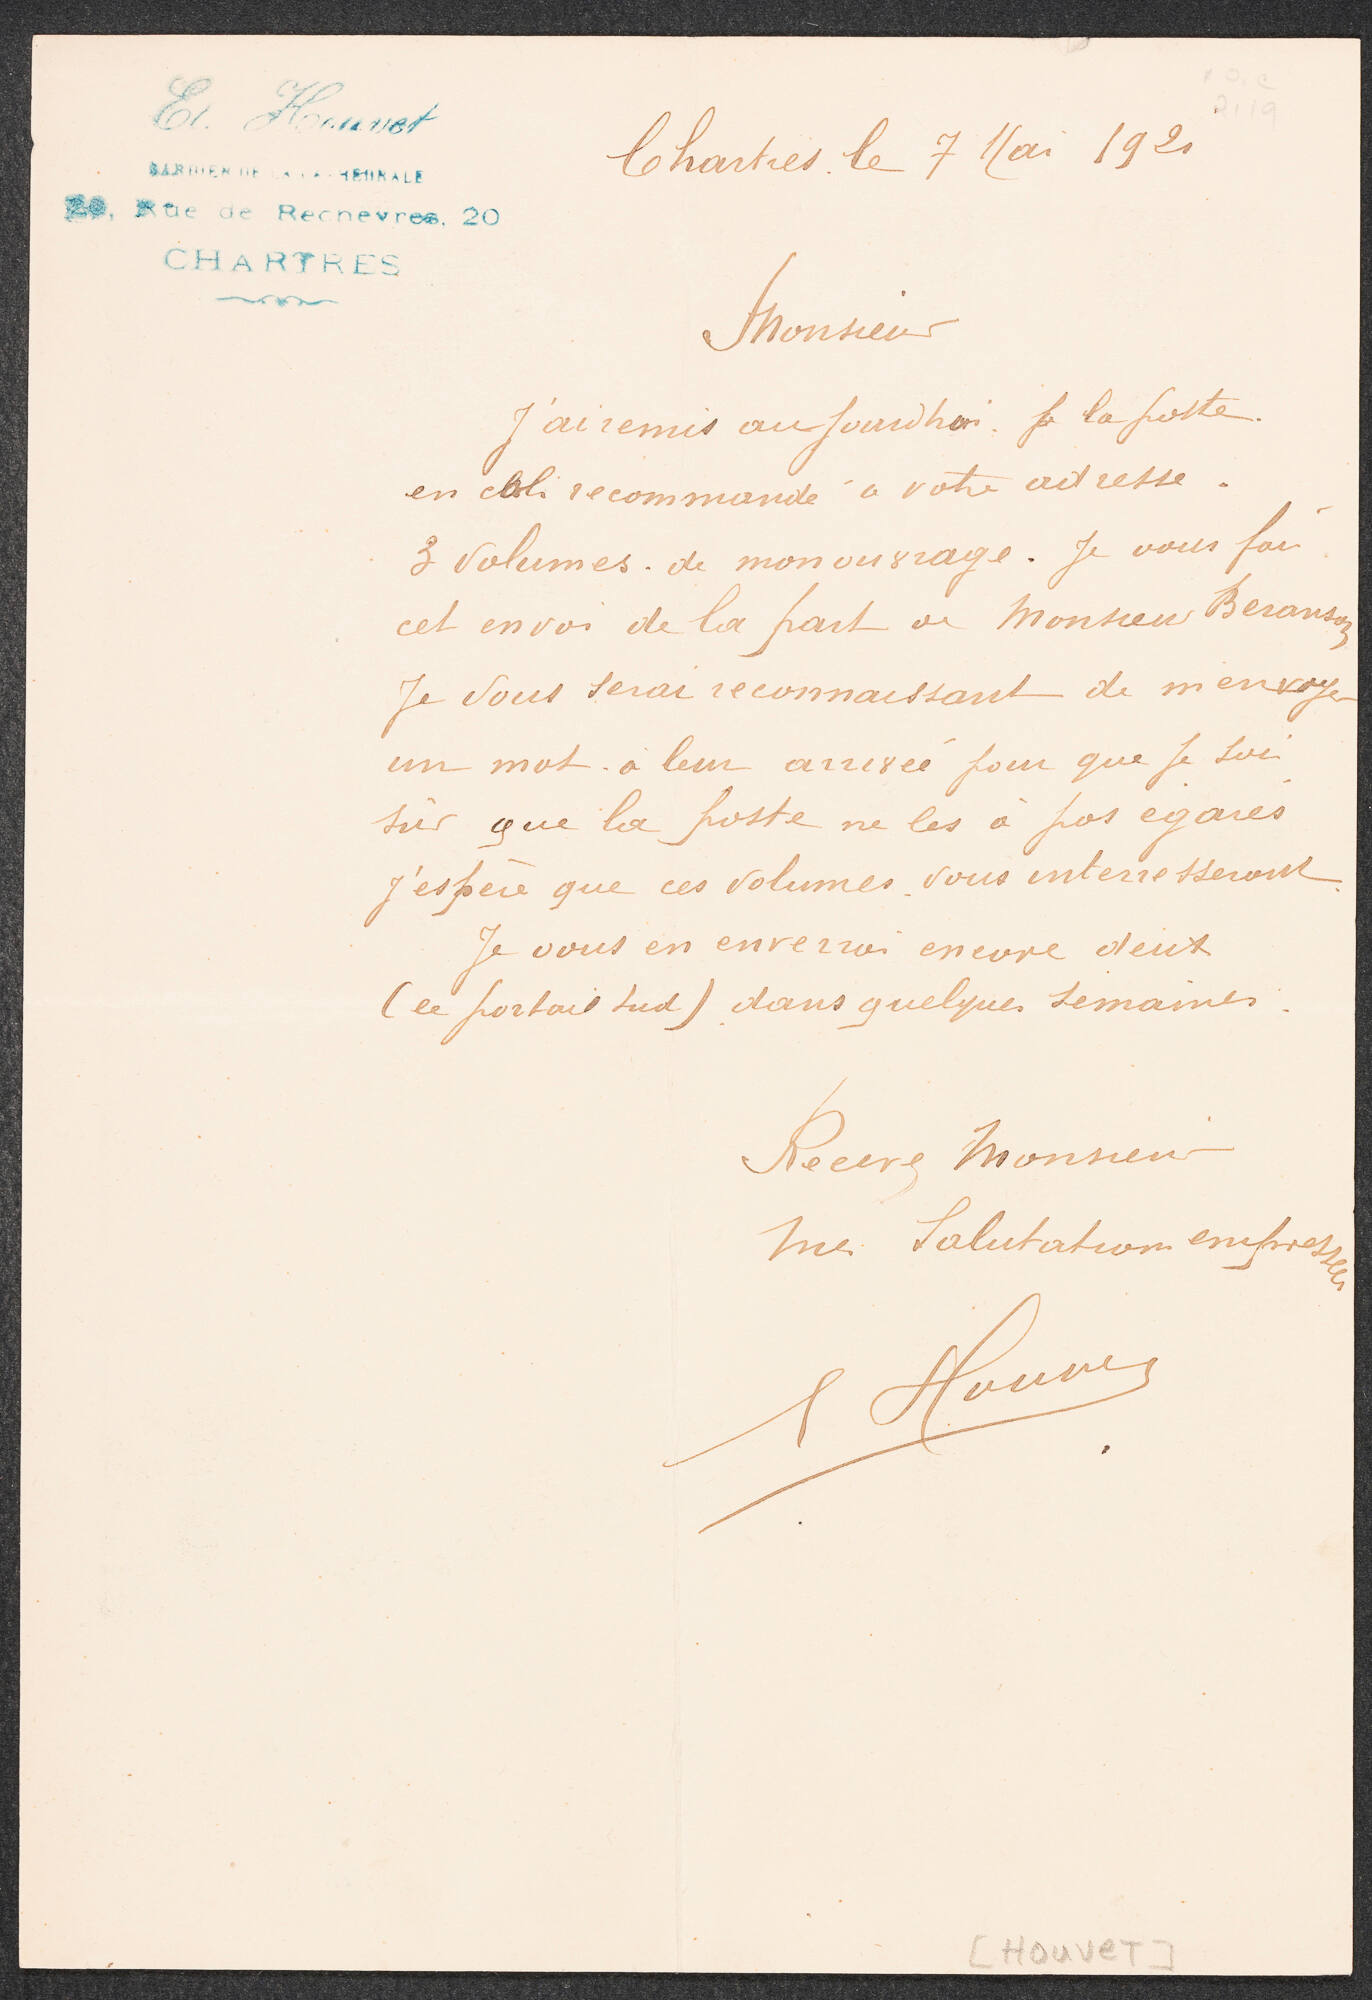 Et. Houvet
GARDIEN DE LA CATHEDRALE
20, Rue de Rechevres, 20
CHARTRES
Chartres. le 7 Mai 1921
Monsieur
J'ai remis aujourdhui. à la poste.
en coli recommandé a votre adresse.
3 volumes. de mon ouvrage. Je vous fai
cet envoi de la part de Monsieur
Je vous serai reconnaissant de m'envoyer
un mot. a leur arrivéé pour que je soi
sûr que la poste ne les à pas égarés
j'espère que ces volumes vous interresseront.
Je vous en enverrai encore deux
(le portail sud) dans quelques semaines.
Recevez Monsieur
mes Salutations empressées
E Houvet
[HOUVET]